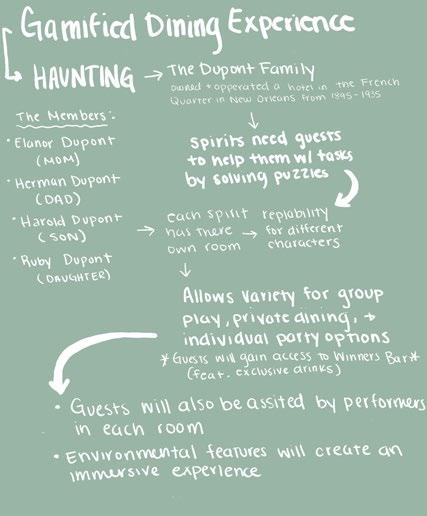 Gamified Dining Experience
HAUNTING → The Dupont Family
owned + opperated a hotel in the French
Quarter in New Orleans from 1895-1935
The Members:
• Elanor Dupont
(MOM)
• Herman Dupont
(DAD)
• Harold Dupont
(SON)
• Ruby Dupont
(DAUGHTER)
Spirits need guests
to help them w/ tasks
by solving puzzles
→ each spirit
has there
own room
→ replability
for different
characters
Allows variety for group
play, private dining, +
individual party options
*Guests will gain access to Winners Bar*
(feat. exclusive drinks)
• Guests will also be assited by performers
in each room
• Environmental features will create an
immersive experience